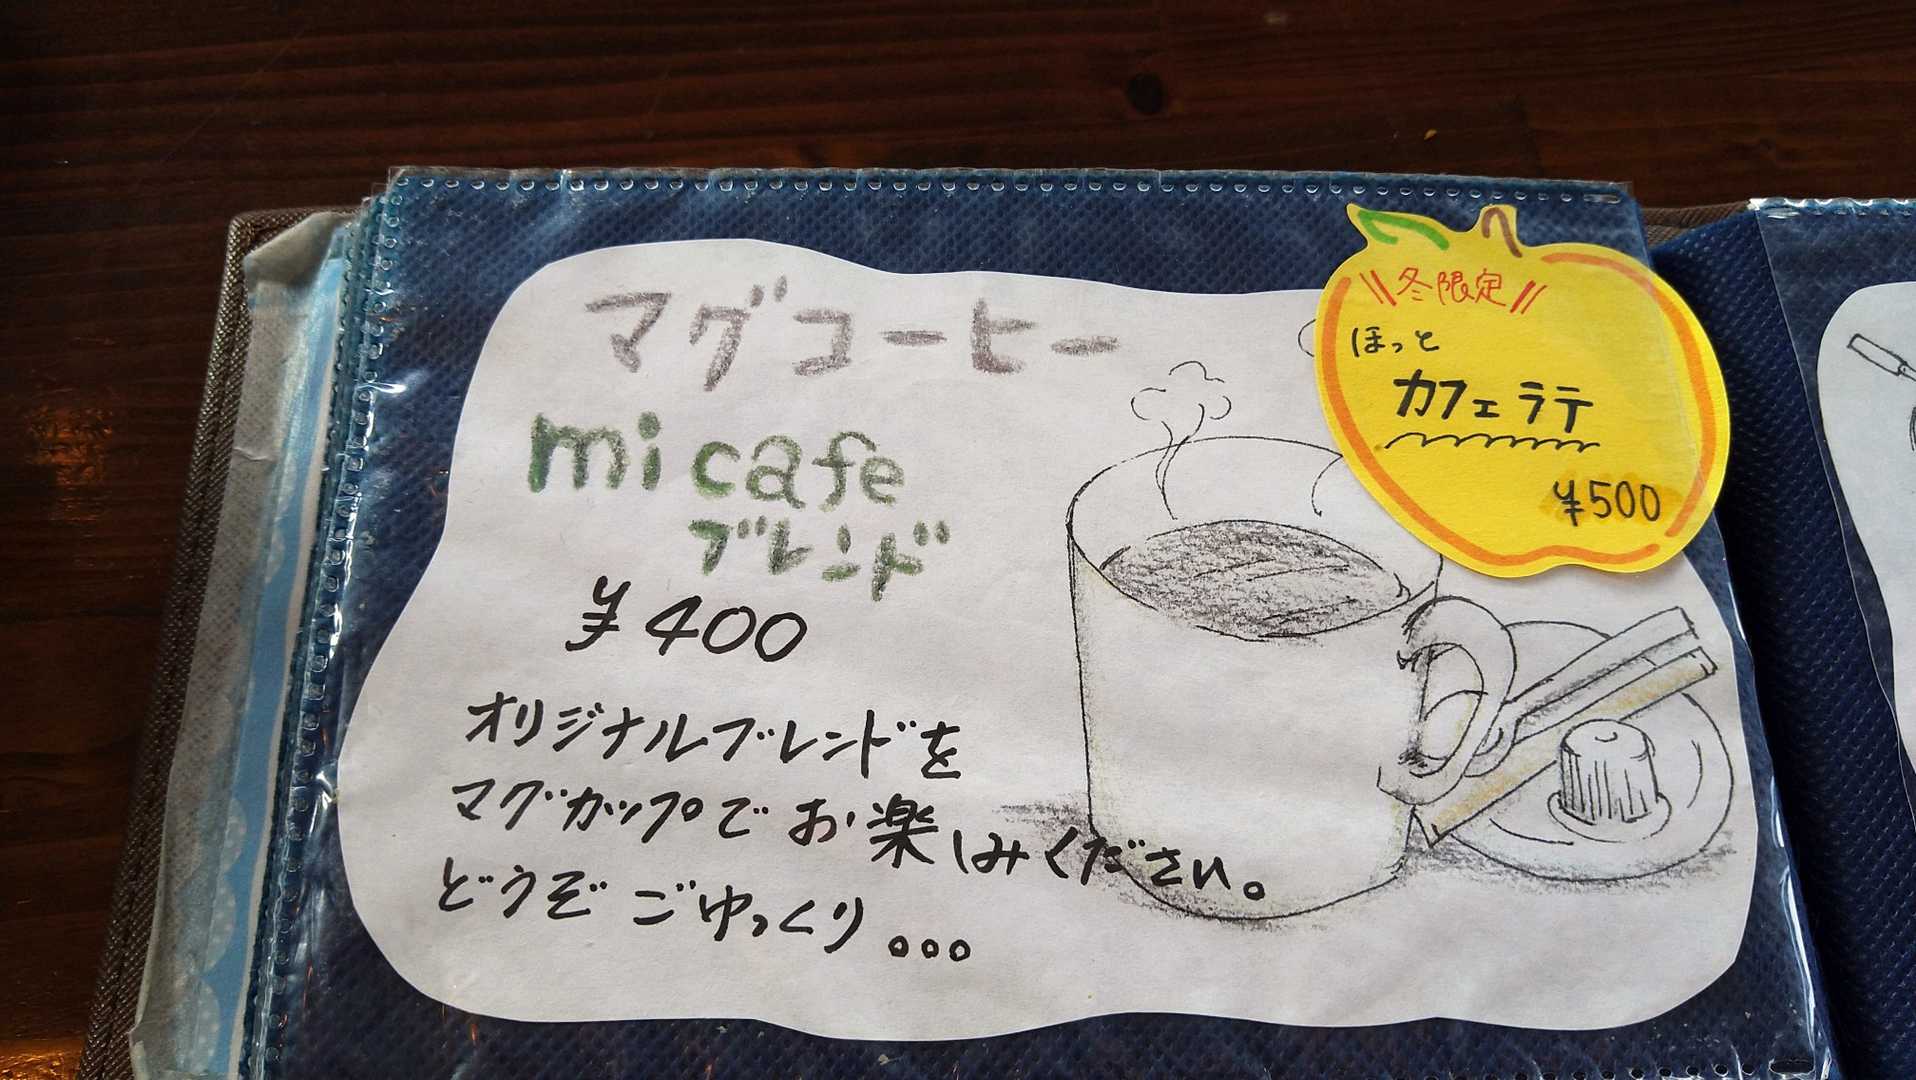 マグコーヒー
mi cafe
ブレンド
¥400
オリジナルブレンドを
マグカップでお楽しみください。
どうぞごゆっくり。。。
\\冬限定//
ほっと
カフェラテ
¥500